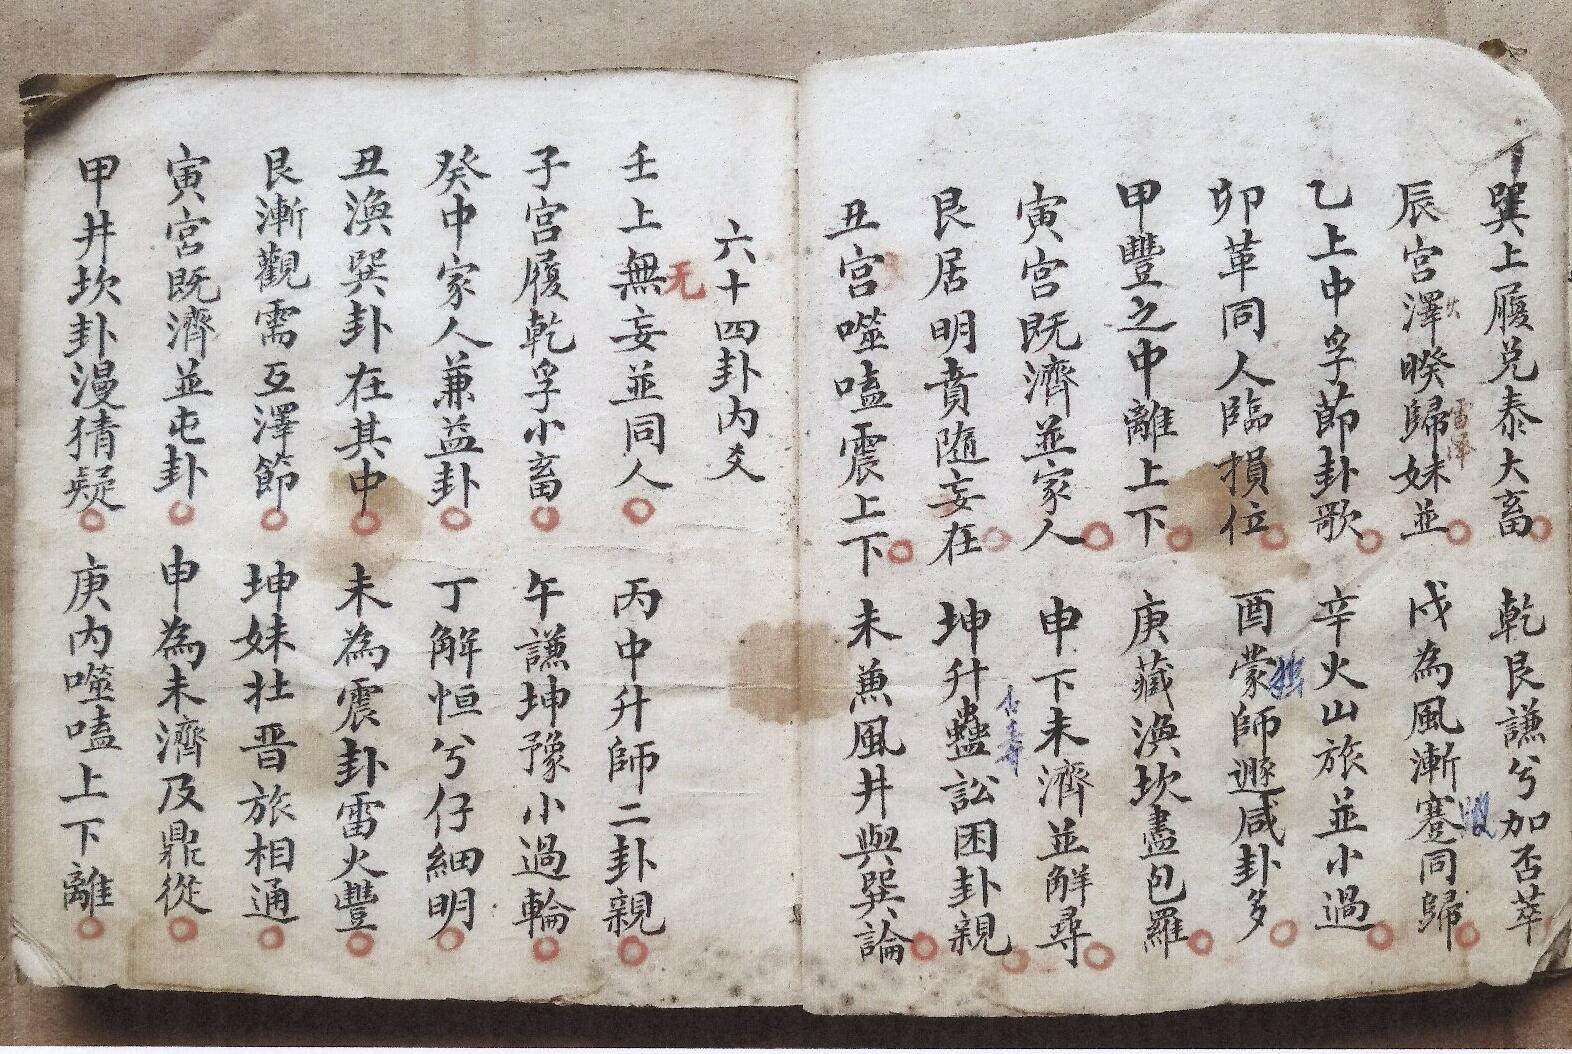 巽上履兌泰大畜　乾艮謙兮加否萃
辰宮澤暌歸妹並　戌為風漸蹇同歸
火
雷澤
乙上中孚節卦歌　辛火山旅並小過
卯革同人臨損位　酉蒙師遯咸卦多
甲豐之中離上下　庚藏渙坎盡包羅
寅宮既濟並家人　申下未濟並解尋
艮居明賁隨妄在　坤升蠱訟困卦親
丑宮噬嗑震上下　未兼風井與巽論
六十四卦內爻
壬上無妄並同人　丙中升師二卦親
无
子宮履乾孚小畜　午謙坤豫小過輪
癸中家人兼益卦　丁解恒兮仔細明
丑渙巽卦在其中　未為震卦雷火豐
艮漸觀需互澤節　坤妹壯晋旅相通
寅宮既濟並屯卦　申為未濟及鼎從
甲井坎卦漫猜疑　庚內噬嗑上下離